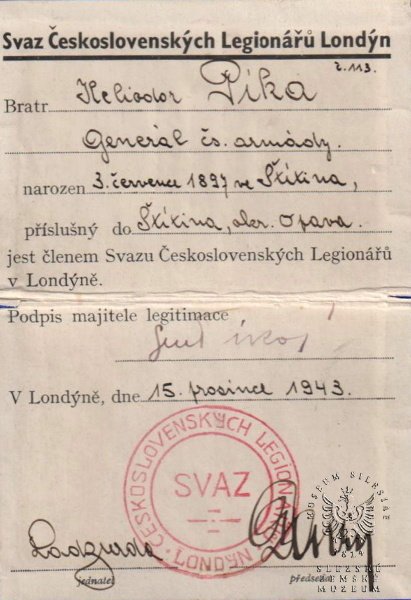 Svaz Československých Legionářů Londýn
č. 113.
Bratr Heliodor Píka
Generál čs. armády.
narozen 3. července 1897 ve Štítina,
příslušný do Štítina, okr. Opava.
jest členem Svazu Československých Legionářů
v Londýně.
Podpis majitele legitimace
V Londýně, dne 15. prosince 1943.
ČESKOSLOVENSKÝCH LEGIONÁŘŮ
SVAZ
LONDÝN
jednatel
předseda
MUSEUM SILESIAE
1814
SLEZSKÉ
ZEMSKÉ
MUZEUM